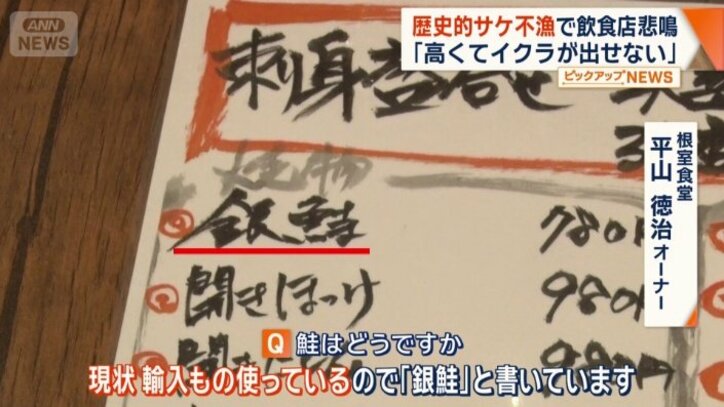 ANN
NEWS
歴史的サケ不漁で飲食店悲鳴
「高くてイクラが出せない」
ピックアップNEWS
根室食堂
平山 徳治 オーナー
刺身盛合せ
焼物
銀鮭
780円
開きほっけ
980円
Q 鮭はどうですか
現状 輸入もの使っているので「銀鮭」と書いています